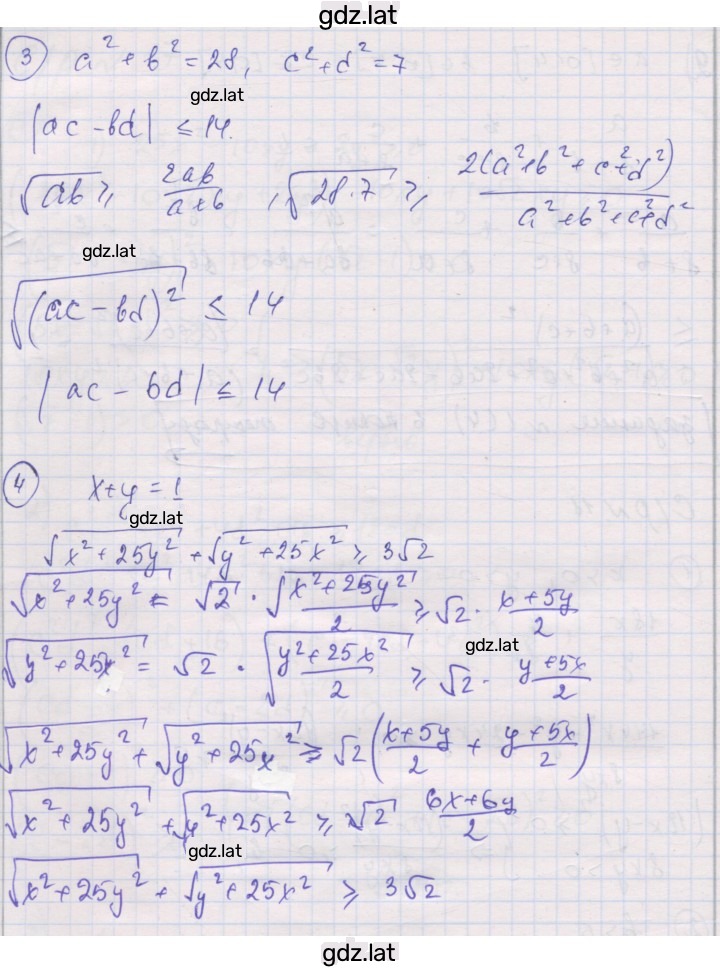 gdz.lat
3 a² + b² = 28, c² + d² = 7
gdz.lat
|ac - bd| ≤ 14.
√ab ≥ 2ab/(a+b), √28·7 ≥ 2(a²+b²+c²+d²)/(a²+b²+c²+d²)
gdz.lat
√(ac - bd)² ≤ 14
|ac - bd| ≤ 14
4 x+y = 1
gdz.lat
√x²+25y² + √y²+25x² ≥ 3√2
√x²+25y² = √2 · √(x²+25y²)/2 ≥ √2 · (x+5y)/2
gdz.lat
√y²+25x² = √2 · √(y²+25x²)/2 ≥ √2 · (y+5x)/2
√x²+25y² + √y²+25x² ≥ √2((x+5y)/2 + (y+5x)/2)
√x²+25y² + √y²+25x² ≥ √2 (6x+6y)/2
gdz.lat
√x²+25y² + √y²+25x² ≥ 3√2
gdz.lat